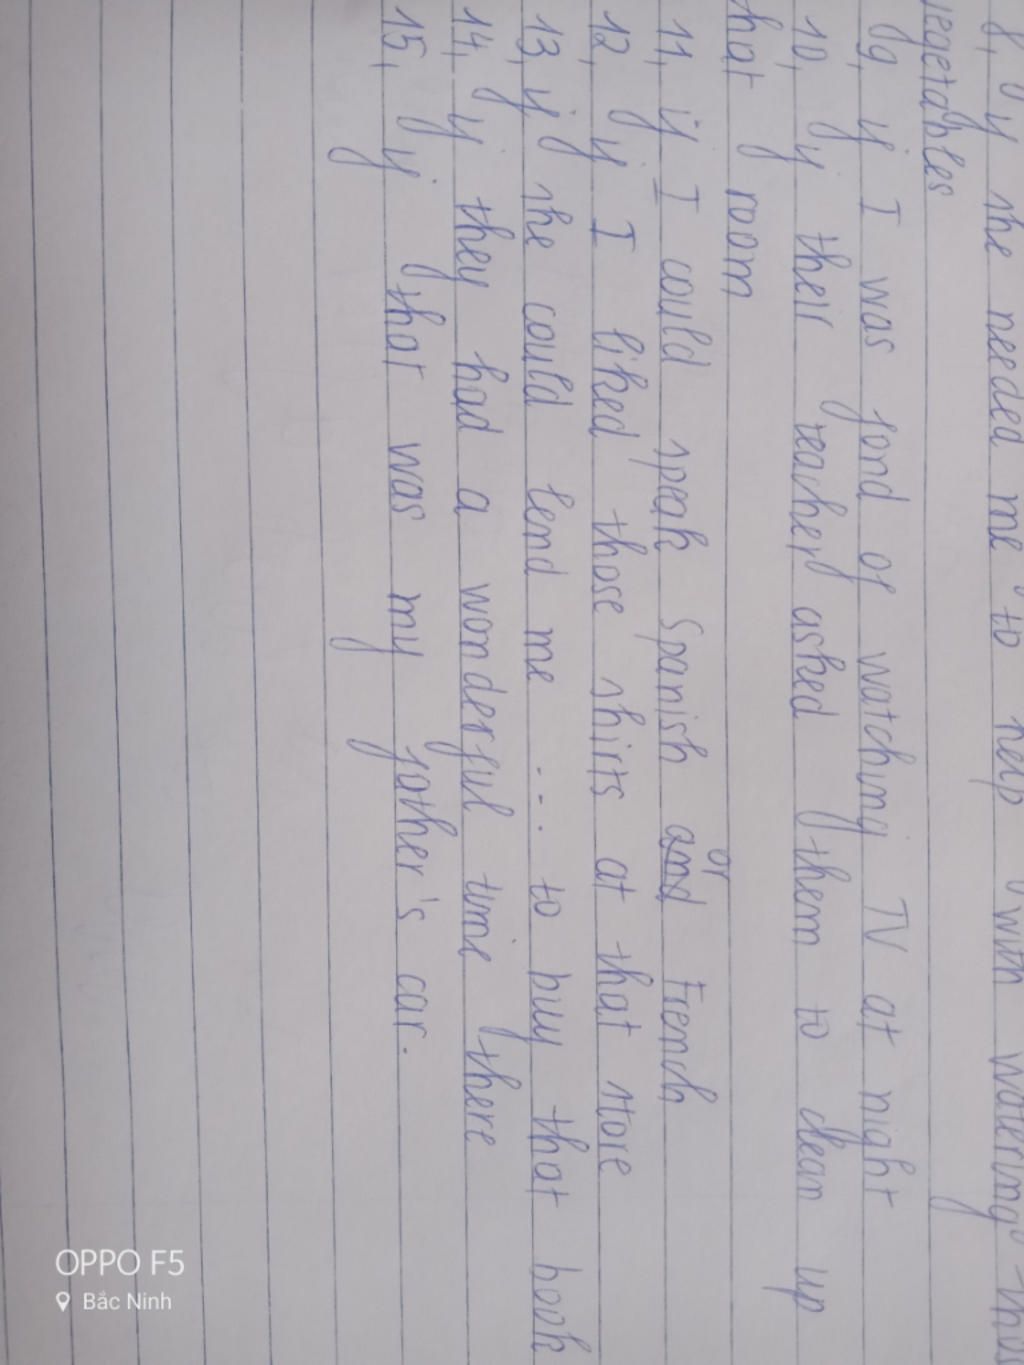 8, if she needed me to help with watering
vegetables
9, if I was fond of watching TV at night
10, if their teacher asked them to clean up
that room
11, if I could speak Spanish and or French
12, if I liked those shirts at that store
13, if she could lend me ... to buy that book
14, if they had a wonderful time there
15, if that was my father's car.
OPPO F5
Bắc Ninh